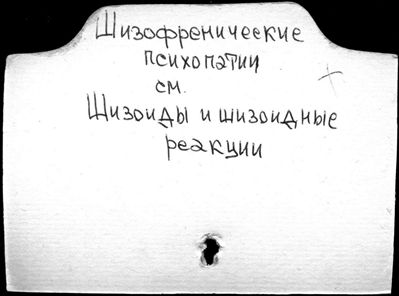 Шизофренические
психопатии
см.
Шизоиды и шизоидные
реакции